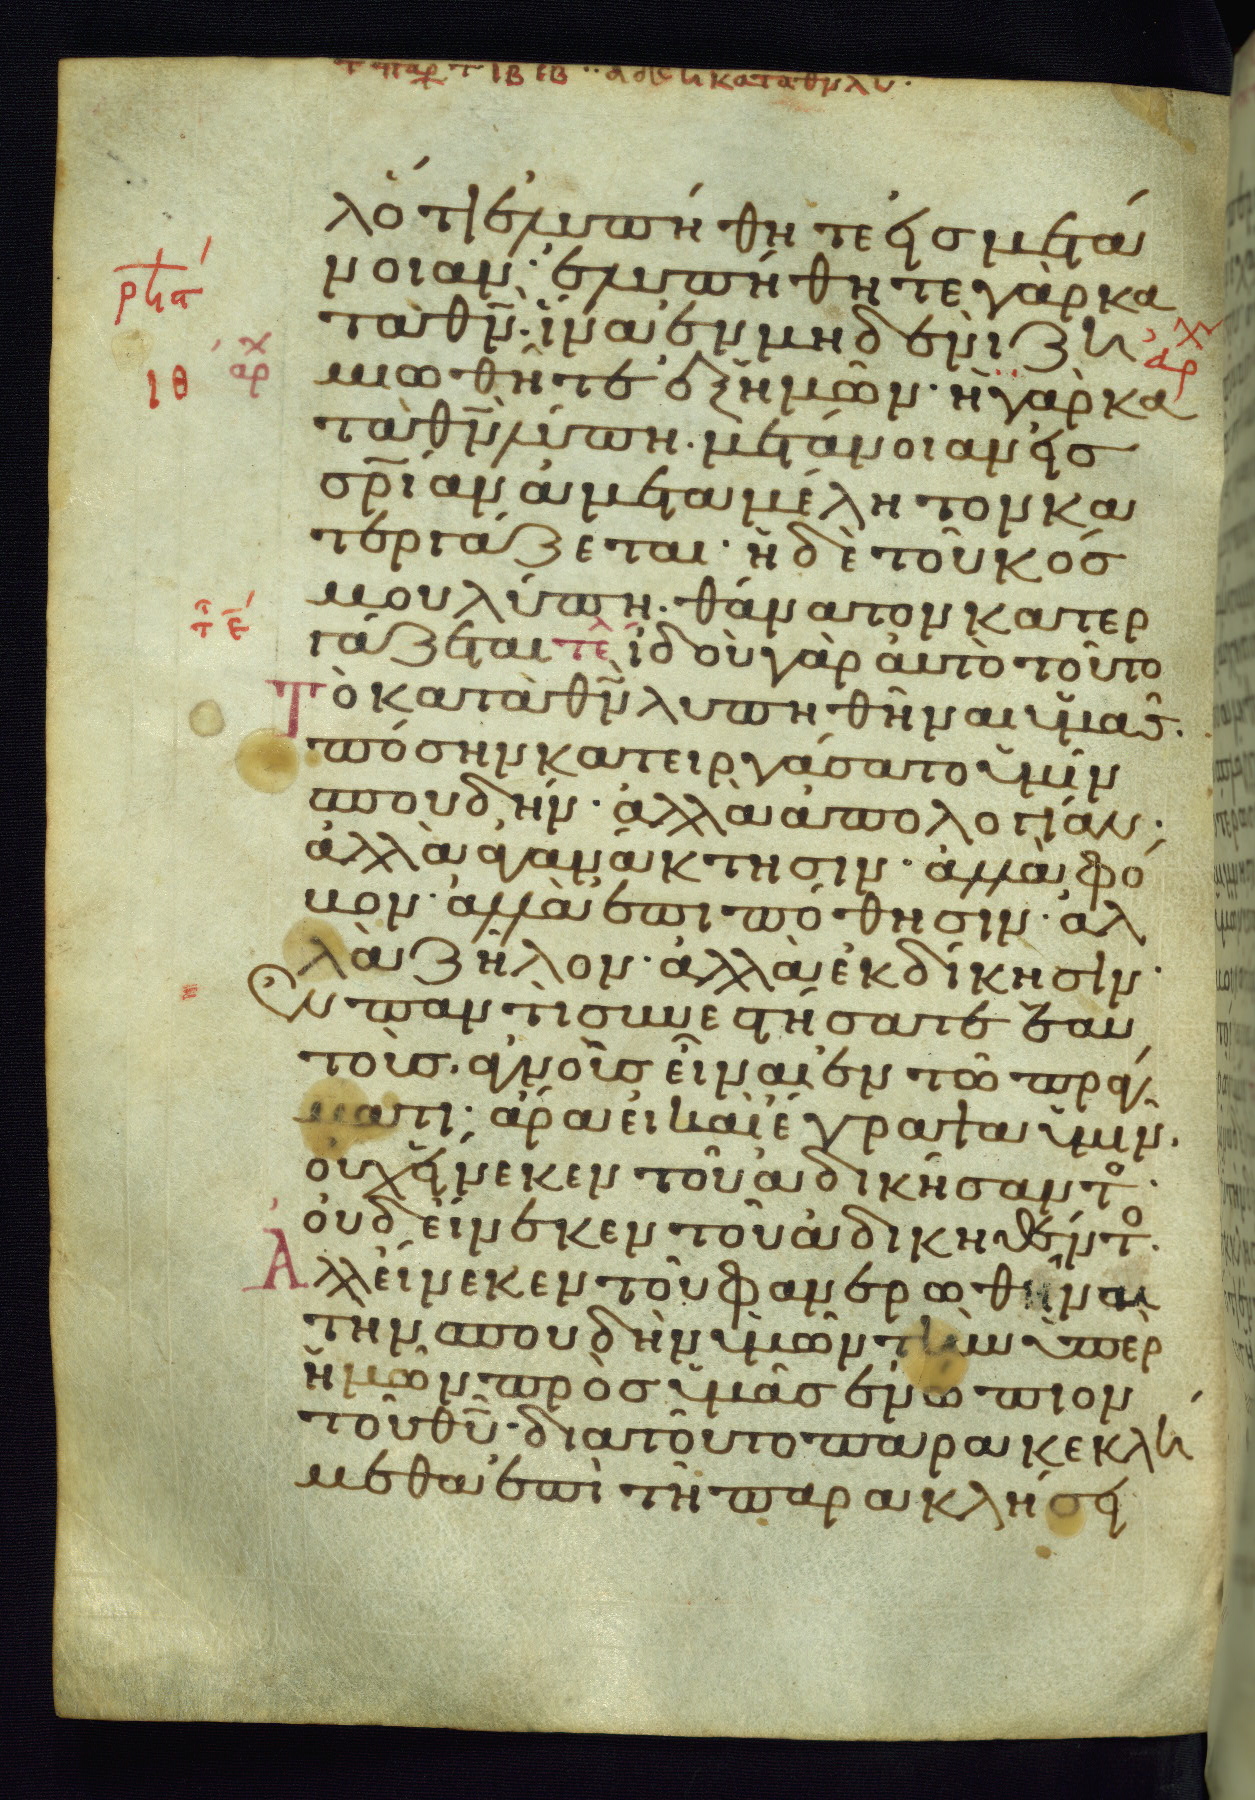 λ' ὅτι ἐλυπήθητε εἰς μετά
νοιαν· ἐλυπήθητε γὰρ κα
τὰ θν̅· ἵνα ἐν μηδενὶ ζη
μιωθῆτε ἐξ ἡμῶν· ἡ γὰρ κα
τὰ θν̅ λύπη· μετάνοιαν εἰς
σρ̅ίαν ἀμεταμέλητον κα
τεργάζεται· ἡ δὲ τοῦ κόσ
μου λύπη· θάνατον κατερ
γάζεται τε̅λ ἰδοὺ γὰρ αὐτὸ τοῦτο
Τὸ κατὰ θν̅ λυπηθῆναι ὑμᾶς·
πόσην κατειργάσατο ὑμῖν
σπουδήν· ἀλλὰ ἀπολογίαν·
ἀλλὰ ἀγανάκτησιν· ἀλλὰ φό
βον· ἀλλὰ ἐπιπόθησιν· ἀλ
λὰ ζῆλον· ἀλλὰ ἐκδίκησιν·
Ἐν παντὶ συνεστήσατε ἑαυ
τοὺς· ἁγνοὺς εἶναι ἐν τῶ πράγ
ματι· ἄρα εἰ καὶ ἔγραψα ὑμῖν·
οὐχ εἵνεκεν τοῦ ἀδικήσαντο·
οὐδ' εἵνεκεν τοῦ ἀδικηθέντο·
Ἀλλ' εἵνεκεν τοῦ φανερωθῆναι
τὴν σπουδὴν ὑμῶν τὴν ὑπὲρ
ἡμῶν πρὸς ὑμᾶς ἐνώπιον
τοῦ θυ̅· διὰ τοῦτο παρακεκλή
μεθα ἐπὶ τῆ παρακλήσει
ιθ
ἀρχ
ἀρχ
τε̅